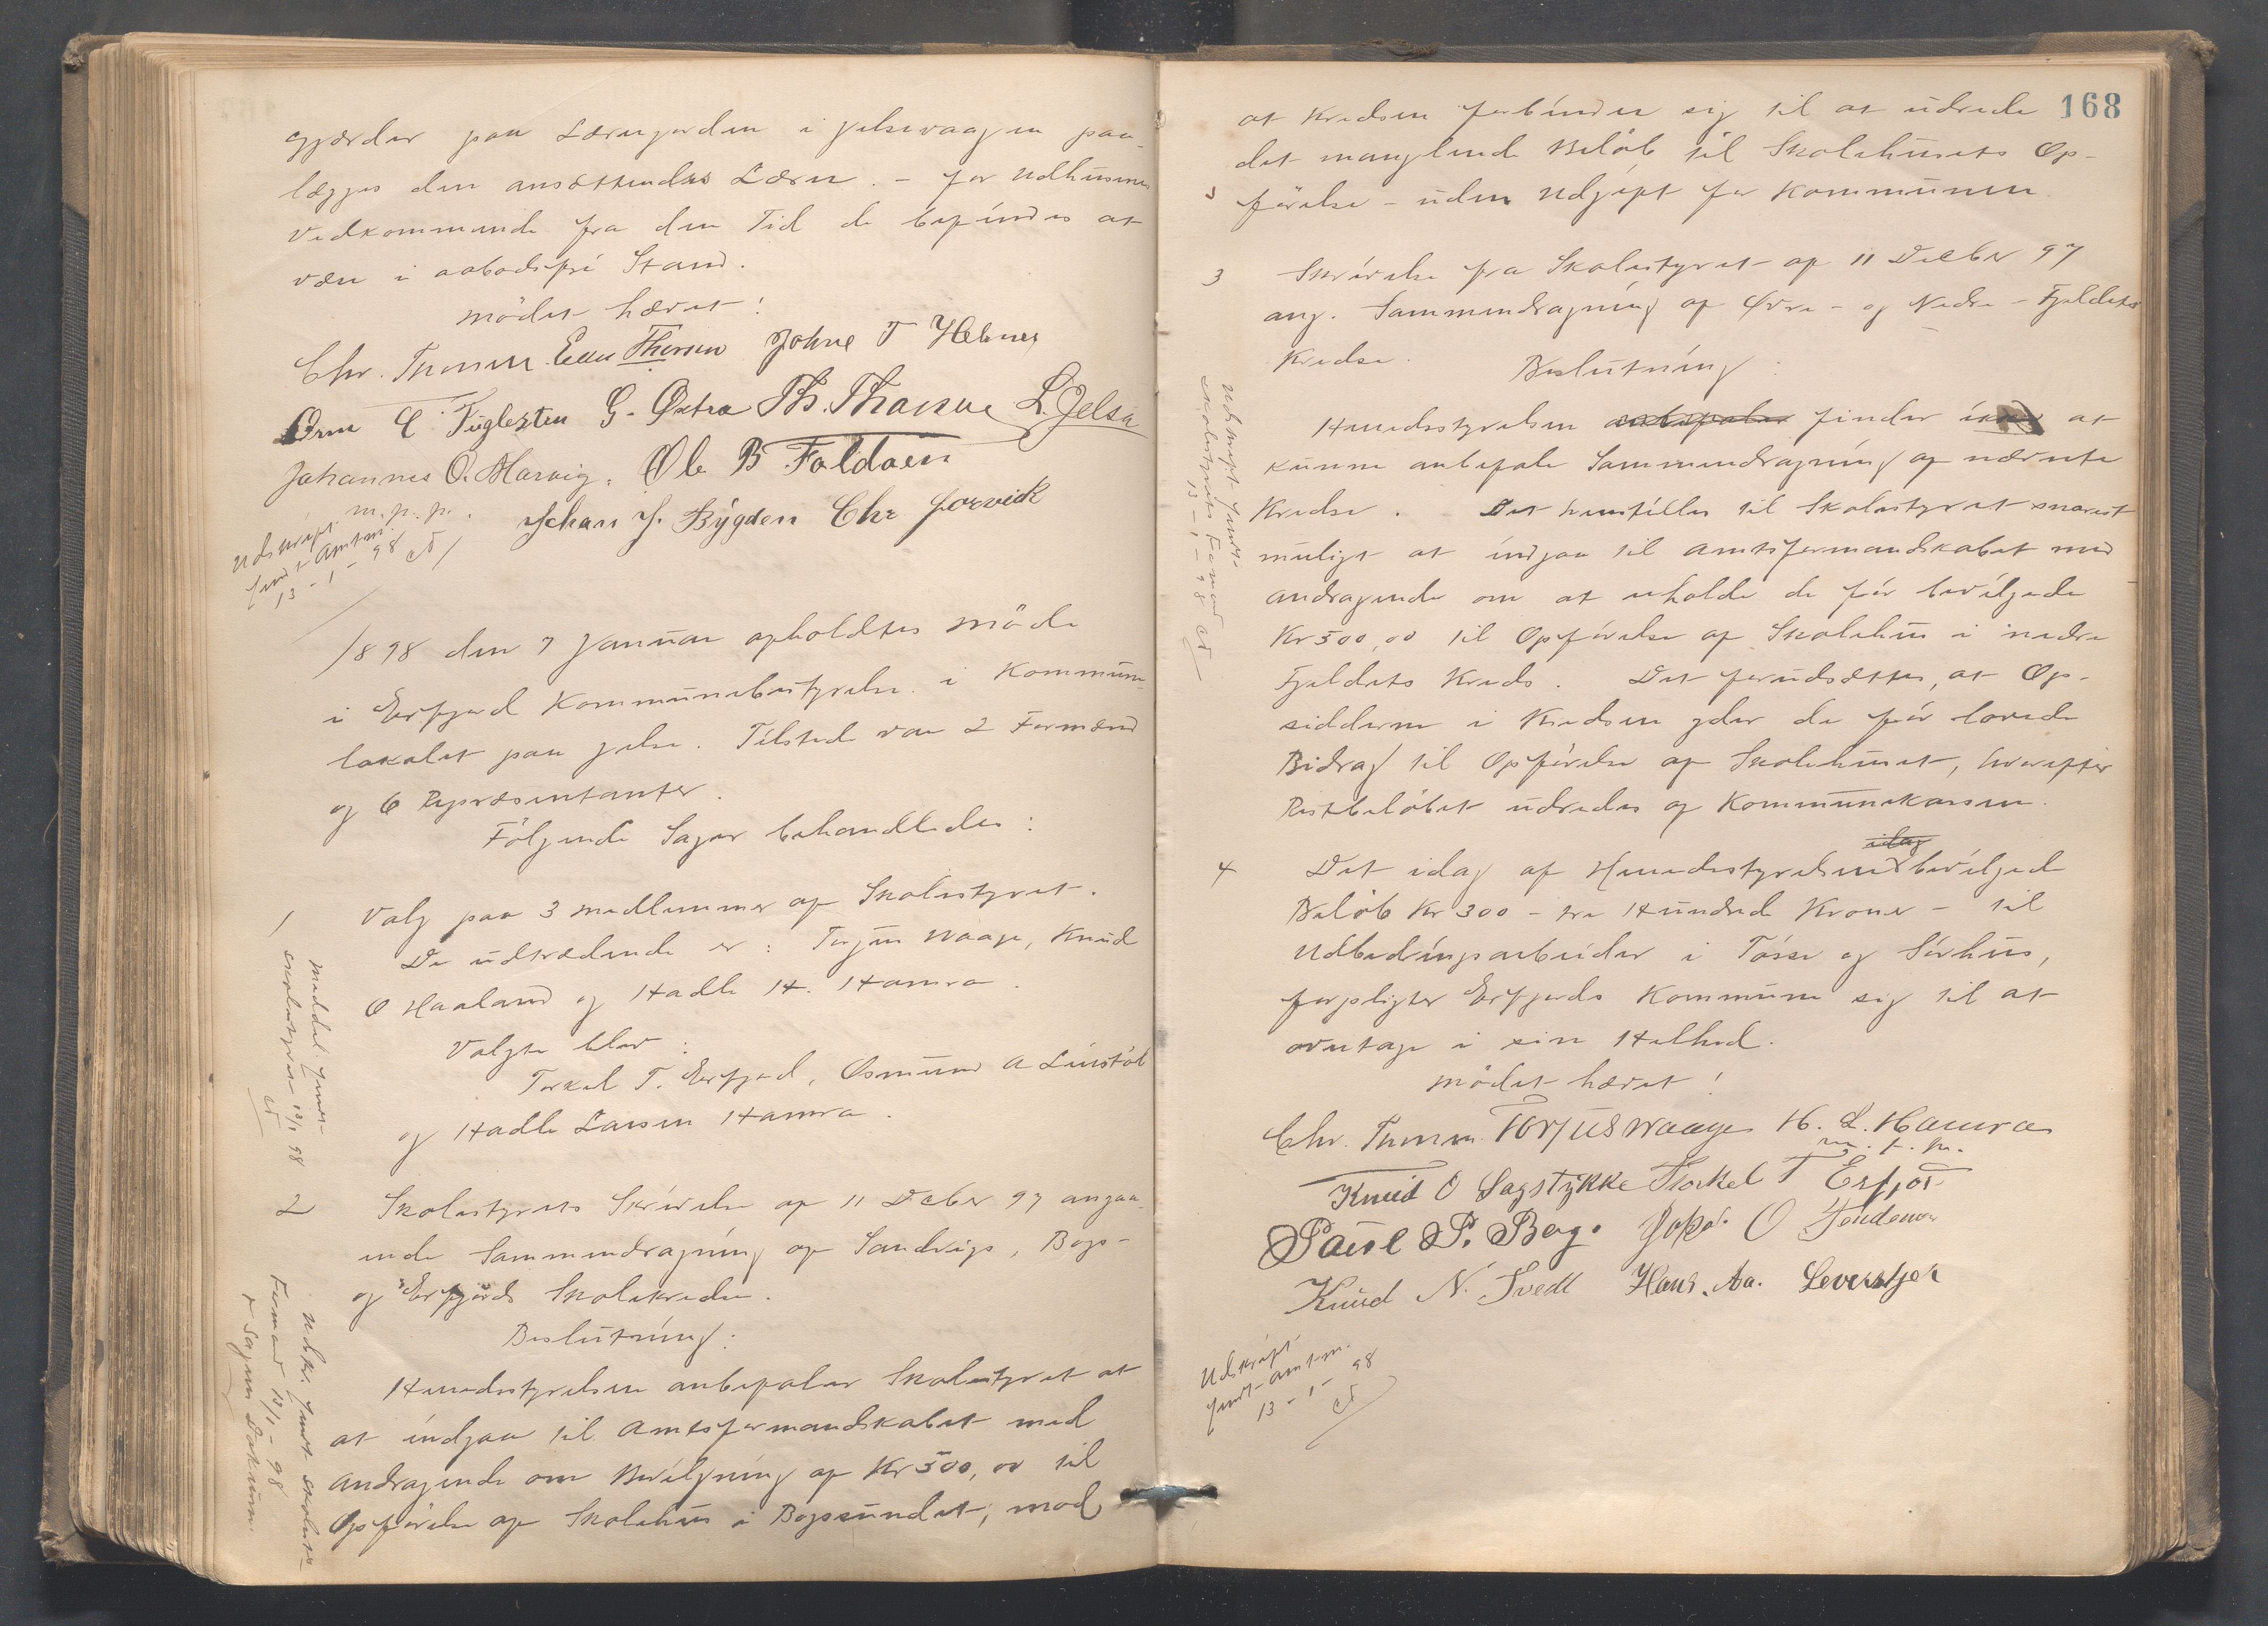 gjærder paa Lærergarden i Jelsevaagen paa-
lægges den ansættendes Lærer. – for Udhusenes
Vedkommende fra den Tid de befindes at
være i aabodsfri Stand.
Mödet hævet!
Chr. Thorsen. Thorsen Johne T Hebnes
Orm E Fuglesten G. Østra Th. Thorsen L. Jelsa
Johannes O. Marvig. Ole B Foldøen
m. p. p.
Johan J. Bygden Chr Jorvick
Udskrift
sendt Amtm.
13-1-98 CT
1898 den 7 Januar apholdtes Möde
i Erfjord Kommunebestyrelse i Kommune-
lokalet paa Jelse. Tilstede var 2 Formænd
og 6 Repræsentanter.
Fölgende Sager behandledes:
1 Valg paa 3 Medlemmer af Skolestyret.
De udtrædende er: Torjus Waage, Knud
O Haaland og Hadle H. Hamra.
Valgte blev:
Torkel T. Erfjord, Osmund A Linstöl
og Hadle Larsen Hamra.
Meddel. sendt
Skolestyret 13/1 98
CT
2 Skolestyrets Skrivelse af 11 Dcber 97 angaa-
ende Sammendragning af Sandvigs, Bogs-
og Erfjords Skolekredse.
Beslutning:
Herredsstyrelsen anbefaler Skolestyret at
at indgaa til Amtsformandskabet med
Andragende om Bevilgning af Kr 500,00 til
Opförelse af Skolehus i Bogsundet, mod
Udskr. sendt Skolest.
Formand 13/1-98
+ Sagens Dokum.
168
at Kredsen forbinder sig til at udrede
det manglende Belöb til Skolehusets Op-
förelse – uden Udgift for Kommunen.
3 Skrivelse fra Skolestyret af 11 Decber 97
ang. Sammendragning af Øvre- og Nedre-Fjeldets
Kredse.
Beslutning:
Herredsstyrelsen anbefaler finder ikke at
kunne anbefale Sammendragning af nævnte
Kredse. Det henstilles til Skolestyret snarest
muligt at indgaa til Amtsformandskabet med
Andragende om at erholde de för bevilgede
Kr 500,00 til Opförelse af Skolehus i nedre
Fjeldets Kreds. Det forudsættes, at Op-
sidderne i Kredsen yder de för lovede
Bidrag til Opförelse af Skolehuset, hvorefter
Restbelöbet udredes af Kommunekassen.
Udskrift sendt
Skolestyrets Formand
13-1-98 CT
idag
4 Det idag af Herredsstyrelsen bevilgede
Belöb Kr 300 – tre Hundrede Kroner – til
Udbedringsarbeider i Tösse og Sörhus,
forpligter Erfjords Kommune sig til at
overtage i sin Helhed.
Mödet hævet!
Chr. Thorsen. Torjus Waage H. L. Hamra
m. p. p.
Knud O Sagstykke Torkel T Erfjor
Paul P. Berg. O Tendenes
Knud N. Tvedt Hans. Aa.
Udskrift
sendt Amtm.
13-1-98
CT